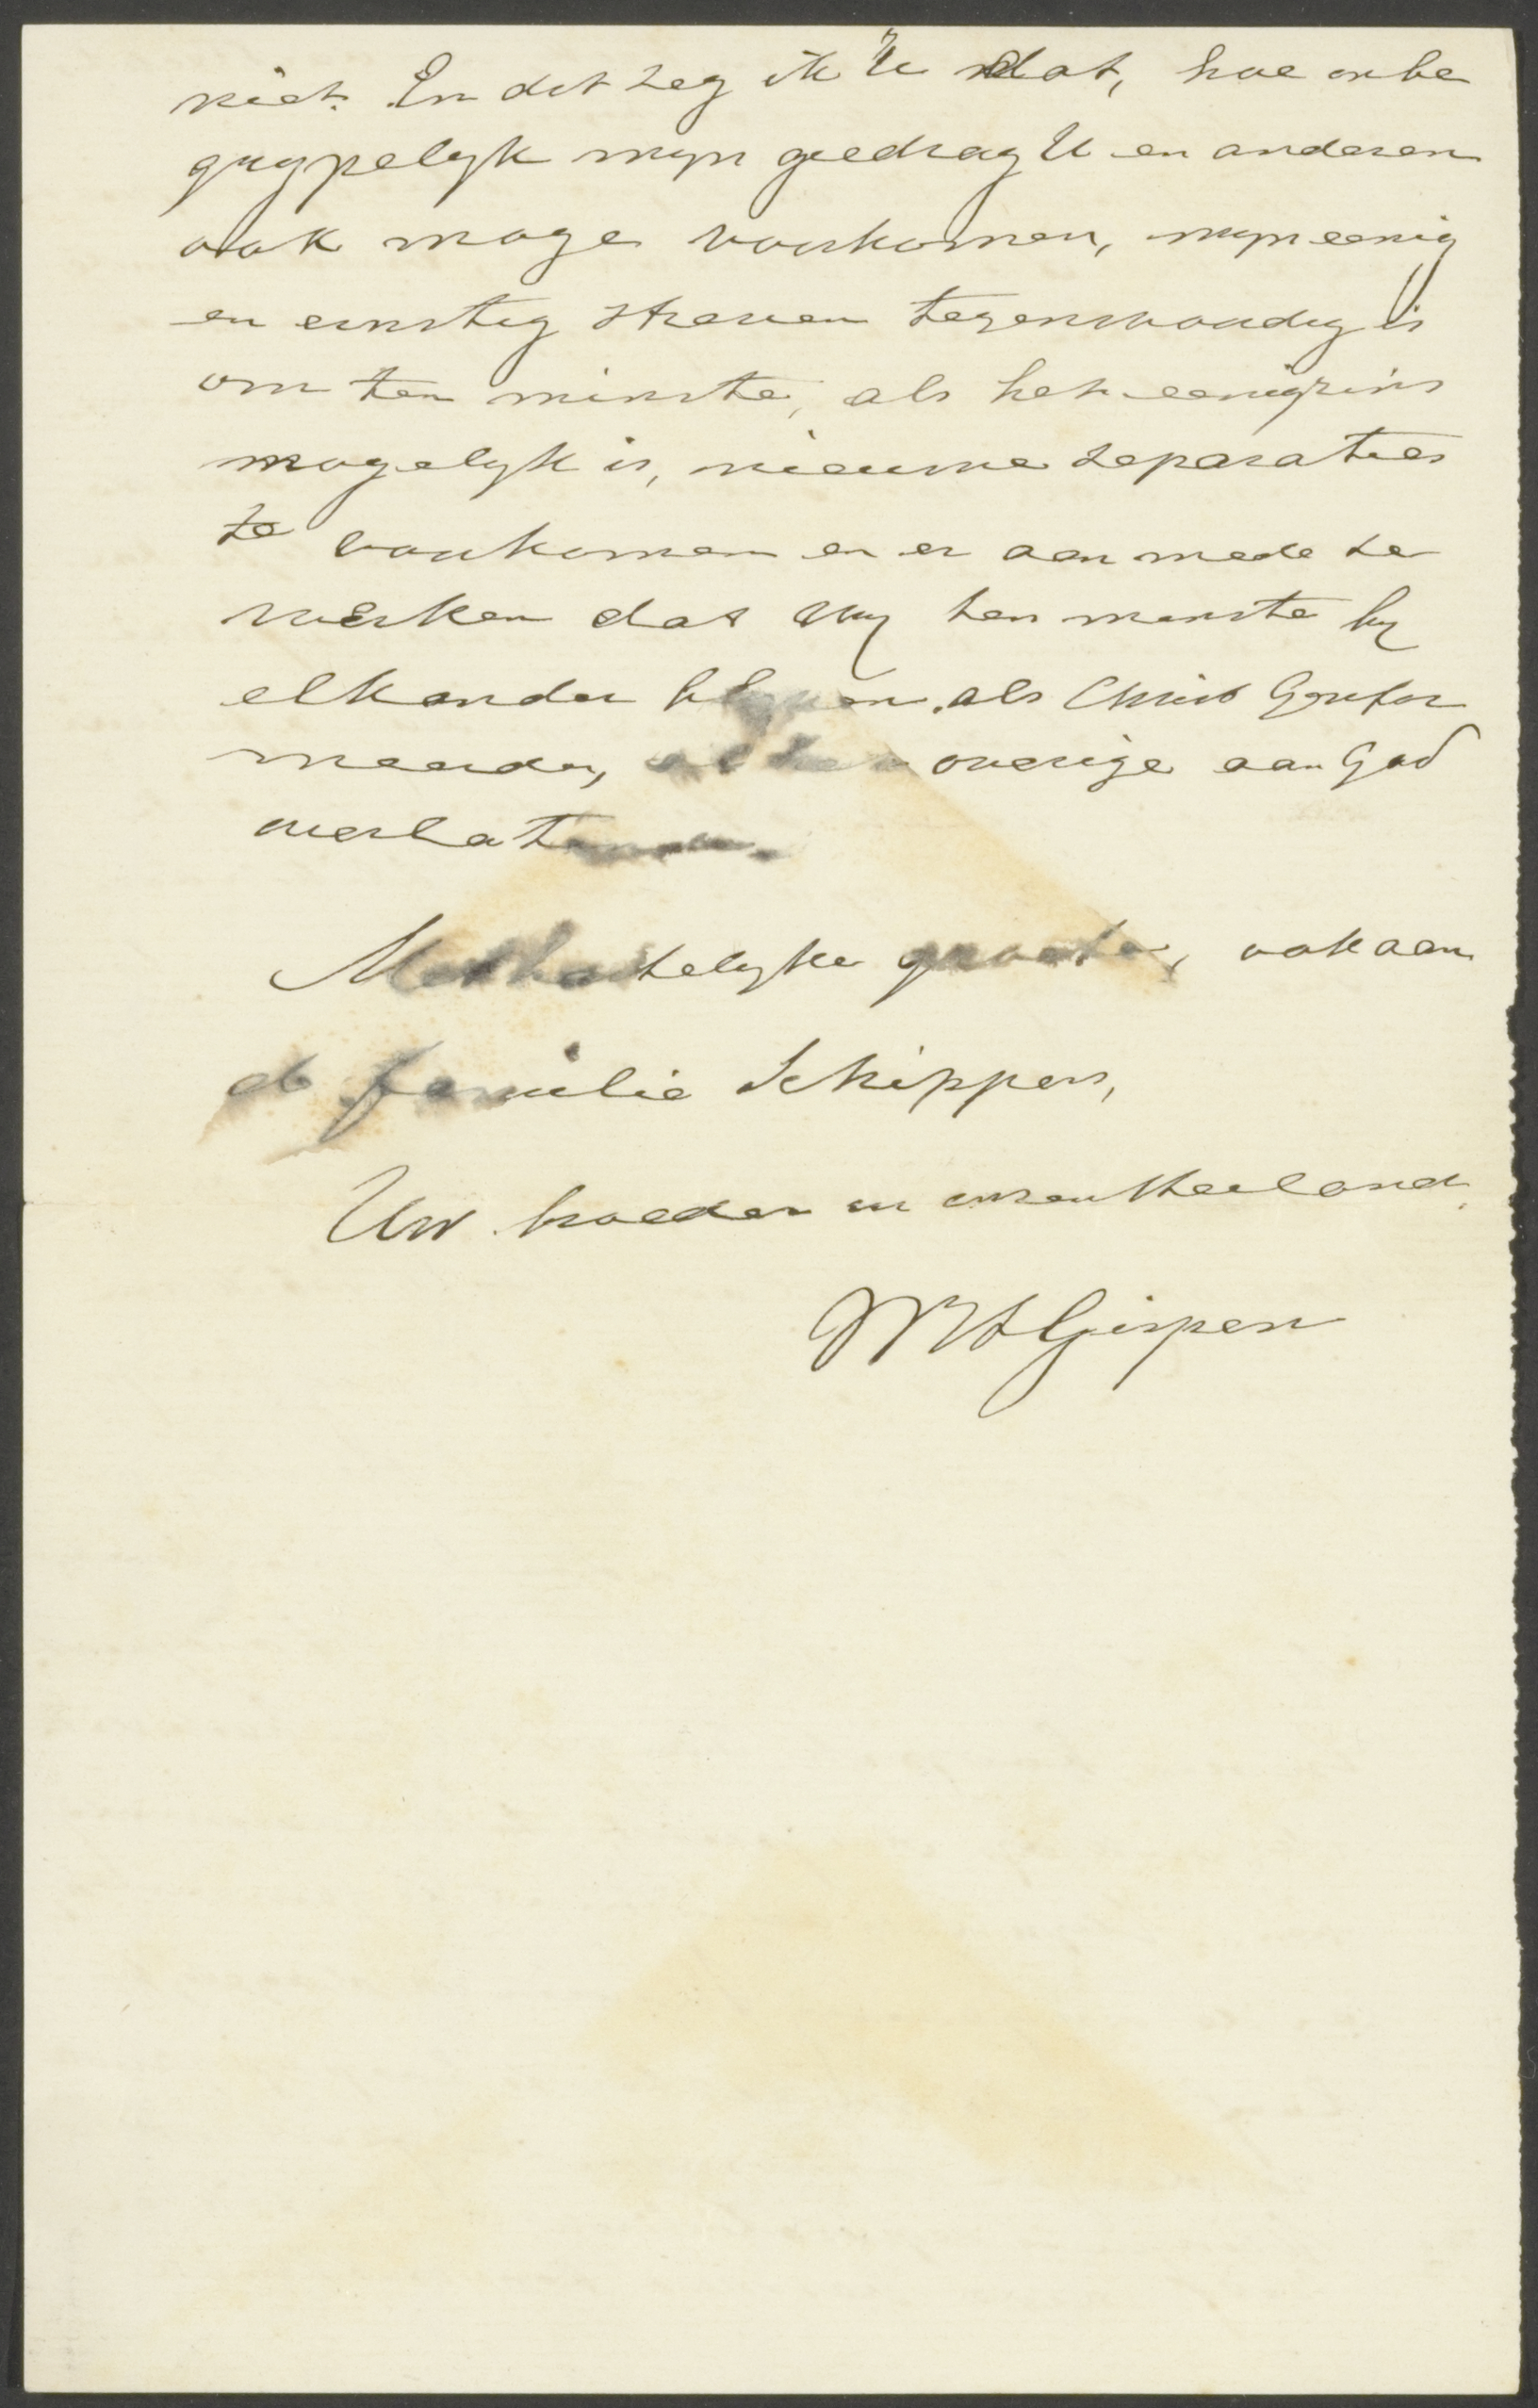 niet. En dit zeg ik U dat, hoe onbe
grypelyk myn gedrag U en anderen
ook moge voorkomen, myn eenig
en ernstig streven tegenwoordig is
om ten minste, als het eenigzins
mogelyk is, nieuwe separaties
te voorkomen en er aan mede te
werken dat wy ten minste by
elkander blyven als Christ Gerefor
meerden, al het overige aan God
overlatende.
Met hartelyke groete, ook aan
de familie Schippers,
Uw broeder in onzen Heeland.
W H Gispen